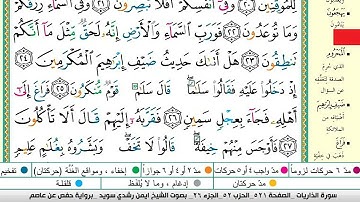 لِّلْمُوقِنِينَ ﴿٢٠﴾ وَفِىٓ أَنفُسِكُمْ أَفَلَا تُبْصِرُونَ ﴿٢١﴾ وَفِى ٱلسَّمَآءِ رِزْقُكُمْ
وَمَا تُوعَدُونَ ﴿٢٢﴾ فَوَرَبِّ ٱلسَّمَآءِ وَٱلْأَرْضِ إِنَّهُۥ لَحَقٌّ مِّثْلَ مَآ أَنَّكُمْ
تَنطِقُونَ ﴿٢٣﴾ هَلْ أَتَىٰكَ حَدِيثُ ضَيْفِ إِبْرَٰهِيمَ ٱلْمُكْرَمِينَ ﴿٢٤﴾
إِذْ دَخَلُوا۟ عَلَيْهِ فَقَالُوا۟ سَلَٰمًا قَالَ سَلَٰمٌ قَوْمٌ مُّنكَرُونَ ﴿٢٥﴾ فَرَاغَ إِلَىٰٓ
أَهْلِهِۦ فَجَآءَ بِعِجْلٍ سَمِينٍ ﴿٢٦﴾ فَقَرَّبَهُۥٓ إِلَيْهِمْ قَالَ أَلَا تَأْكُلُونَ
﴿٢٧﴾ فَأَوْجَسَ مِنْهُمْ خِيفَةً قَالُوا۟ لَا تَخَفْ وَبَشَّرُوهُ بِغُلَٰمٍ عَلِيمٍ
مدّ ٦ حركات لزوماً مدّ ٢ أو ٤ أو ٦ جوازاً إخفاء، ومواقع الغُنَّة (حركتان) تفخيم
مدّ واجب ٤ أو ٥ حركات مدّ حركتان إدغام، وما لا يُلفَظ قلقلة
سورة الذاريات _ الصفحة ٥٢١ _ الحزب ٥٢ _ الجزء ٢٦ _ بصوت الشيخ ايمن رشدي سويد _ برواية حفص عن عاصم